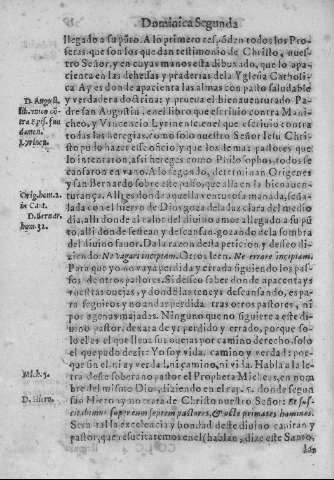 Dominica Segunda
llegado a su pũto. A lo primero respõden todos los Pro-
fetas que son los que dan testimonio de Christo, nues-
tro Señor, y en cuyas manos esta dibuxado, que lo apa-
cienta en las dehesas y praderias dela Yglesia Catholi-
ca Ay es donde apacienta las almas con pasto saludable
D. August.
y verdadera doctrina: y prueua el bienauenturado Pa-
dre san Augustin en el libro que escriuio contra Mani-
cheo, y Vancencio Lyrinense en el que escriuio contra
Lyrinen.
todas las heregias, como solo nuestro Señor Iesu Chri
sto pudo hazer este oficio y que los de mas pastores que
lo intentaron, assi hereges como Philosophos, todos se
cansaron en vano. A lo segundo, determinan Origenes
Orig. hom. 2.
y san Bernardo sobre este passo, que alla en la bienauen-
in Cant.
turança. Alli es donde aquella venturosa manada, seña-
D. Bernar.
lada con el hierro de Dios goza de la luz clara del medio
hom. 32.
dia, alli donde al calor del diuino amor allegado a su pũ
to, alli donde sestean y descansan gozando de la sombra
del diuino fauor. Da la razon desta peticion, y desseo di-
ziendo: No vagari incipiam. Otros leen. Ne errare incipiam.
Para que yo no vaya perdida y errada siguiendo los pas-
sos de otros pastores. Si desseo saber donde apacentays
vuestras ouejas, y donde las teneys descansando, es pa-
ra seguiros y no andar perdida tras otros pastores, ni
por agenas majadas. Ninguno que no siguiere a este di-
uino pastor, dexara de yr perdido y errado, porque so-
lo el es el que lleua sus ouejas por camino derecho, solo
el que pudo dezir: Yo soy vida, camino y verdad: por-
que sin el, ni ay verdad, ni camino, ni vida. Habla a la le-
Mich. 5.
tra deste soberano pastor el Propheta Micheas, en nom
bre del mismo Dios, diziendo en el cap. 5. donde segun
D. Hiero.
san Hieronymo trata de Christo nuestro Señor: Et sus-
citabimus super eum septem pastores, & octo primates homines.
Sera tal la excelencia y bondad deste diuino capitan y
pastor, que resucitaremos en el (hablan, dize este Santo,